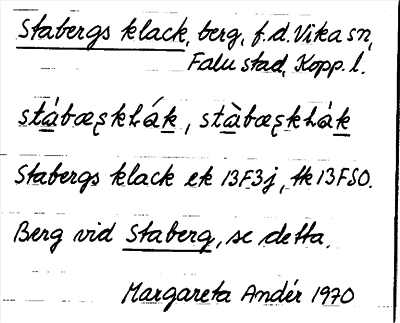 Stabergs klack, berg, f.d. Vika sn,
Falu stad, Kopp. l.
stábæskhák, stàbæskhàk
Stabergs klack ek 13F3j, tk 13FSO.
Berg vid Staberg, se detta.
Margareta Andér 1970